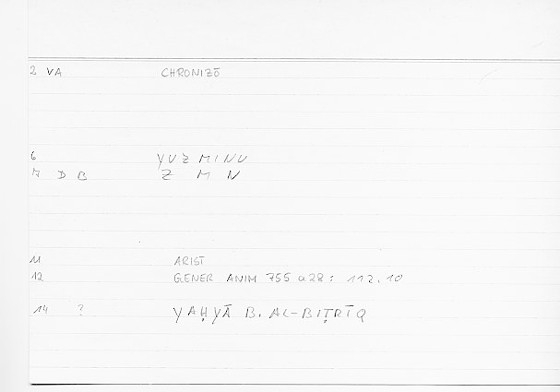 2 VA CHRONIZŌ
6 YUZMINU
7 D B Z M N
11 ARIST
12 GENER ANIM 755 a28: 112.10
14 ? YAḤYĀ B. AL-BIṬRĪQ